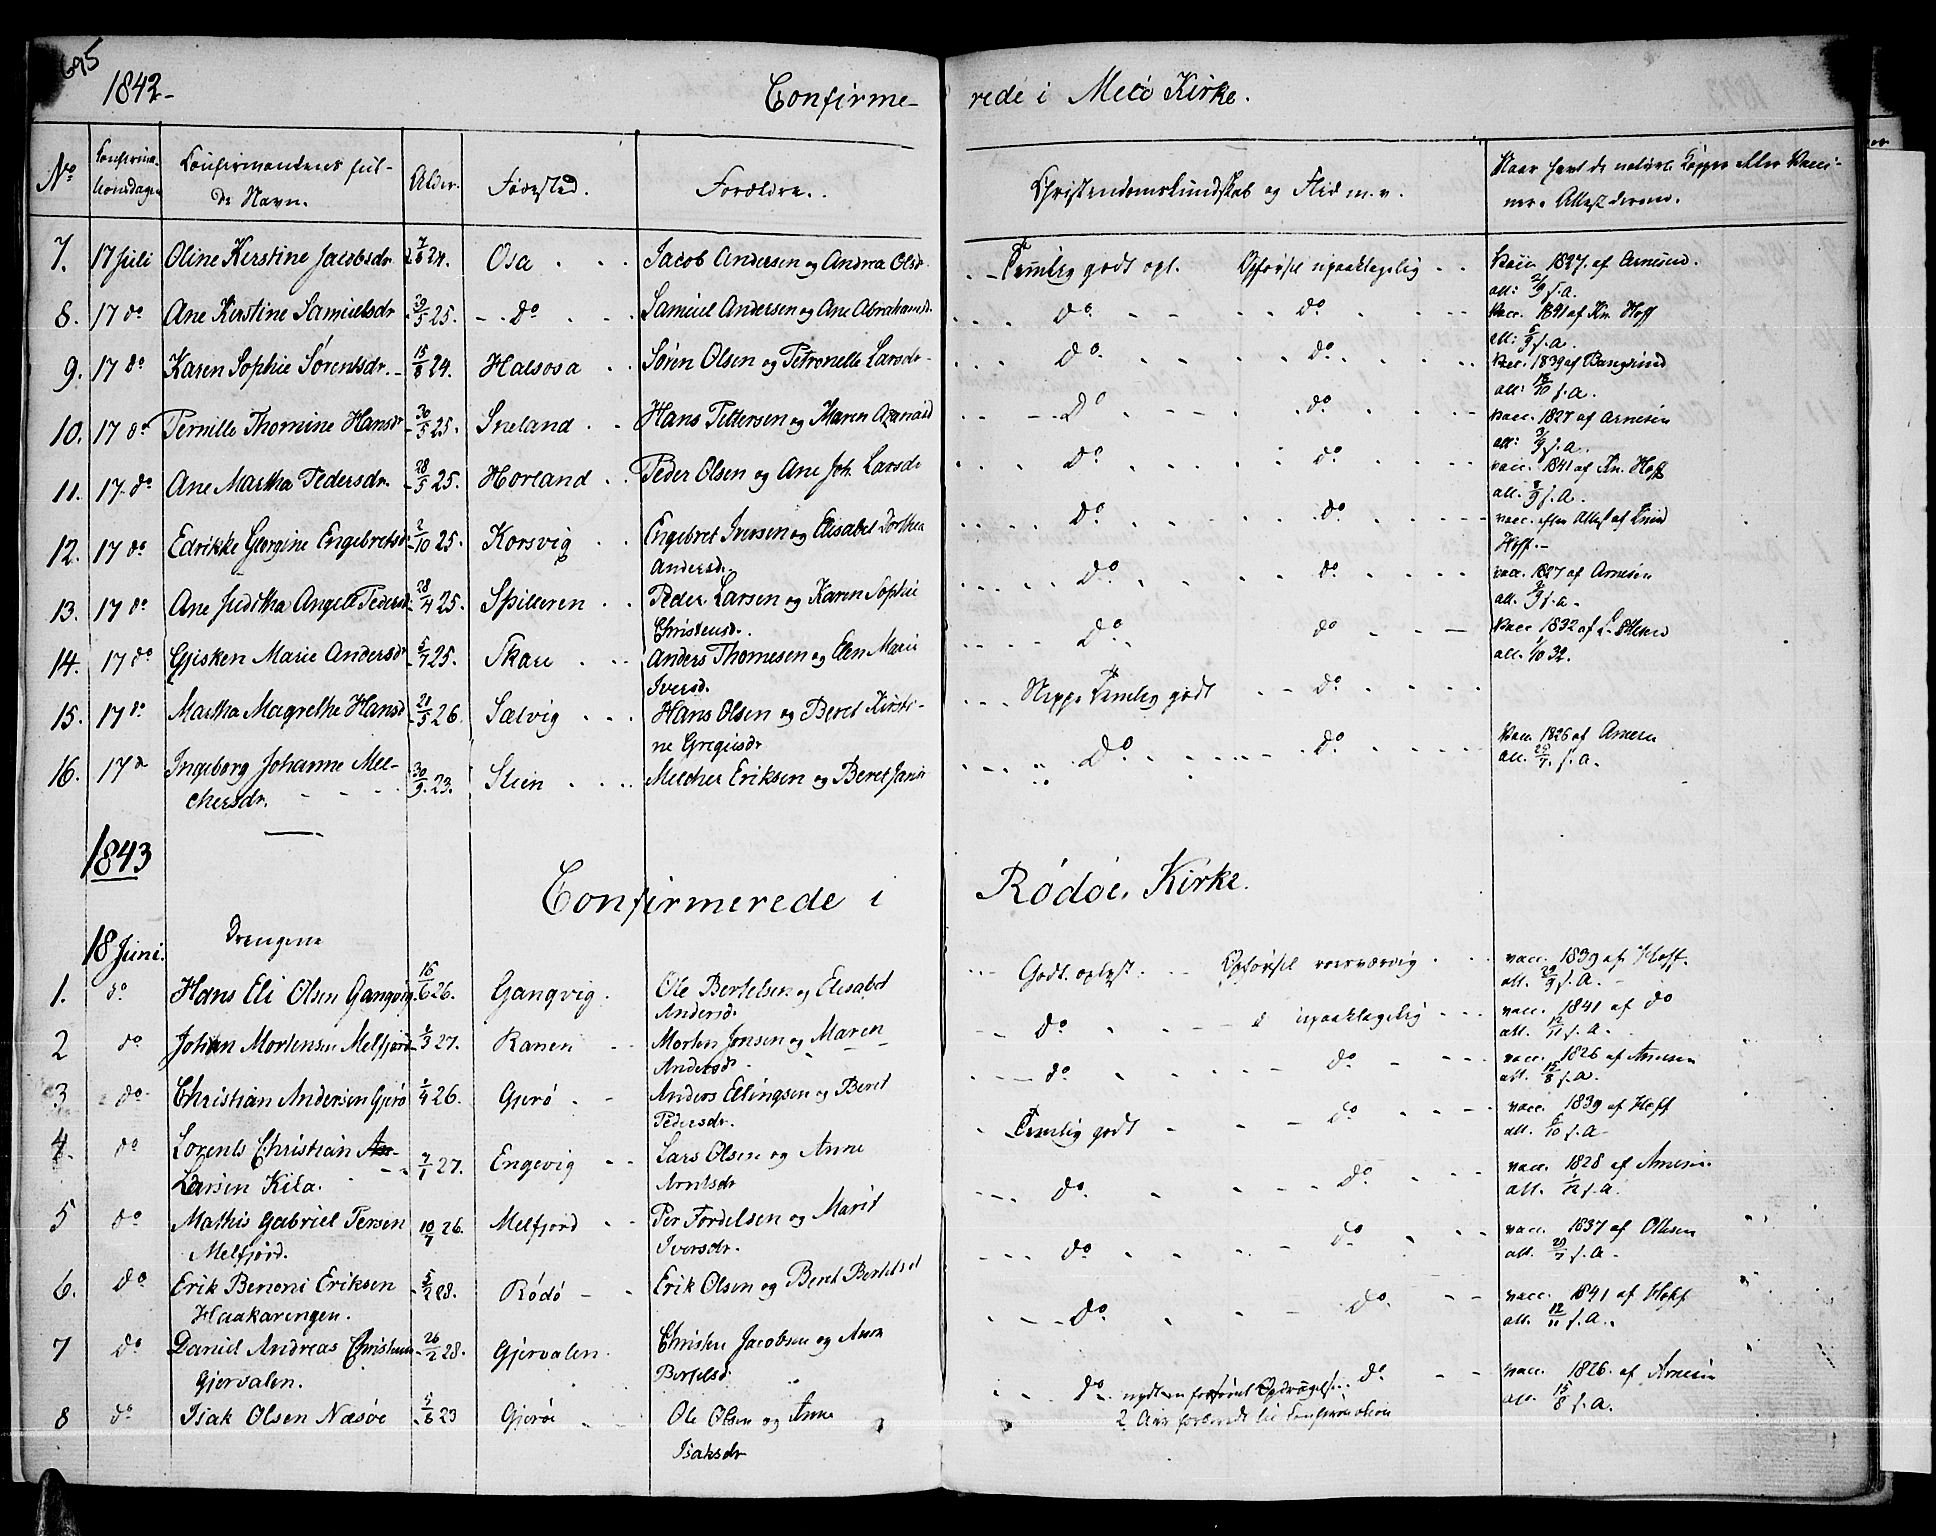 695
1842- Confirme- rede i Melö Kirke.
No Confirma- Confirmandens ful- Alder. Fødested. Forældre. Christendomskundskab og Flid m. v. Naar havt de naturl. Kopper eller Vacci-
tionsdagen de Navn. ner. Attest derom.
7. 17 Juli Oline Kerstine Jacobsdr 7/6 24. Osa Jacob Andersen og Andrea Olsd. Temlig godt opl. Opførsel upaaklagelig Vacc. 1827. af Arnesen.
att: 3/9 s. a.
8. 17 do Ane Kirstine Samuelsdr 29/5 25. do Samuel Andersen og Ane Abrahamsd. do do Vacc. 1841 af Kn. Hoff
att: 6/9 s. a.
9. 17 do Karen Sophie Sørensdr. 15/8 24. Halsosa Søren Olsen og Petronelle Larsdr do do Vacc. 1839 af Bangsund
att: 18/10 s. a.
10. 17 do Pernille Thomine Hansdr 30/5 25. Sneland Hans Pettersen og Maren do do vacc. 1827 af Arnesen
att: 3/9 s. a.
11. 17 do Ane Martha Pedersdr. 28/5 25. Horland Peder Olsen og Ane Joh. Larsdr do do vacc. 1841 af Kn. Hoff
att. 8/9 s. a.
12. 17 do Edrikke Georgine Engebretsdr 2/10 25. Korsvig Engebret Iversen og Elisabet Dorthea do do vacc. efter Attest af Knud
Andersd. Hoff.-
13. 17 do Ane Juditha Angell Pedersd 28/4 25. Spilderen Peder Larsen og Karen Sophie do do vacc. 1827 af Arnesen
Christensd. att. 3/9 s. a.
14. 17 do Gjisken Marie Andersdr 5/7 25. Skare Anders Thomesen og Elen Marie do do Vacc 1832 af
Iversd. att. 1/10 32.
15. 17 do Martha Magrethe Hansd 21/5 26. Selvig Hans Olsen og Beret Kirsti- Neppe Temlig godt do
ne Gregusdr
16. 17 do Ingeborg Johanne Mel- 30/9 23. Stein Melcher Eriksen og Beret Jansd do do Vacc. 1826 af Arnesen
chersdr. att. 29/7 s. a.
1843 Confirmerede i Rödöe Kirke.
18 Juni. Drengene
1. do Hans Eli Olsen Gangvig 16/6 26. Gangvig. Ole Bertelsen og Elisabet Godt oplyst. Opførsel roesværdig vacc. 1839 af Hoff.
Andersd. att. 29/9 s. a.
2 do Johan Mortensen Melfjord 2/3 27. Ranen Morten Jonsen og Maren do upaaklagelig vacc. 1841 af do
Andersdr. att. 12/11 s. a.
3 do Christian Andersen Gjerö 2/4 26. Gjerö Anders Ellingsen og Beret do do vacc. 1826 af Arnesen
Pedersdr. att. 15/8 s. a.
4. do Lorents Christian An- 7/1 27. Engevig Lars Olsen og Anne Temlig godt do vacc. 1839 af Hoff
Larsen Kila. Arntsdr att. 6/10 s. a.
5 do Mathis Gabriel Persen 10/7 26. Melfjord Per Fordelsen og Marit do do vacc. 1828 af Arnesen.
Melfjord. Iversdr. att. 1/12 s. a.
6. do Erik Benoni Eriksen 5/2 28. Rödö Erik Olsen og Beret Bertelsd do do vacc. 1837 af Ottesen
Haakarengen. att. 29/7 s. a.
7 do Daniel Andreas Christensen 26/2 28. Gjervalen. Christen Jacobsen og Anna do do vacc. 1841 af Hoff
Gjervalen. Bertelsd. att. 12/11 s. a.
8 do Isak Olsen Næsöe 5/6 23 Gjeröe Ole Olsen og Anne do do vacc. 1826. af Arnesen
Isaksdr 2 Aar Confirmation att. 15/8 s. a.